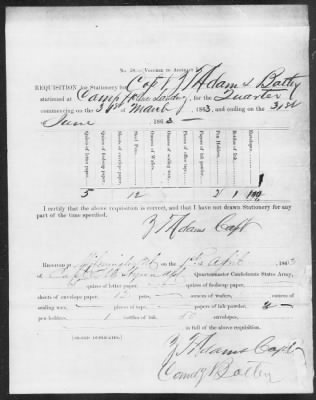 No. 38.—Voucher to Abstract
Requisition for Stationery for Capt Z T Adams Battery
stationed at Camp Landing, for the Quarter
commencing on the 31st of March 1863, and ending on the 31st
of June 1863 —
Quires of letter paper.
Quires of foolscap paper.
Sheets of envelope paper.
Steel Pens.
Ounces of Wafers.
Ounces of sealing wax.
Pieces of office tape.
Papers of ink powder.
Pen Holders.
Bottles of Ink.
Envelopes.
5 12 2 1 100
I certify that the above requisition is correct, and that I have not drawn Stationery for any
part of the time specified.
Z T Adams Capt
Received at Wilmington NC on the 1st April 1863
of Capt Quartermaster Confederate States Army,
5 quires of letter paper quires of foolscap paper,
sheets of envelope paper, 12 pens, ounces of wafers, ounces of
sealing wax, pieces of tape, papers of ink powder, 2
pen holders, 1 bottles of ink, envelopes,
in full of the above requisition.
[SIGNED DUPLICATES.]
Z T Adams Capt
Comdg Battery